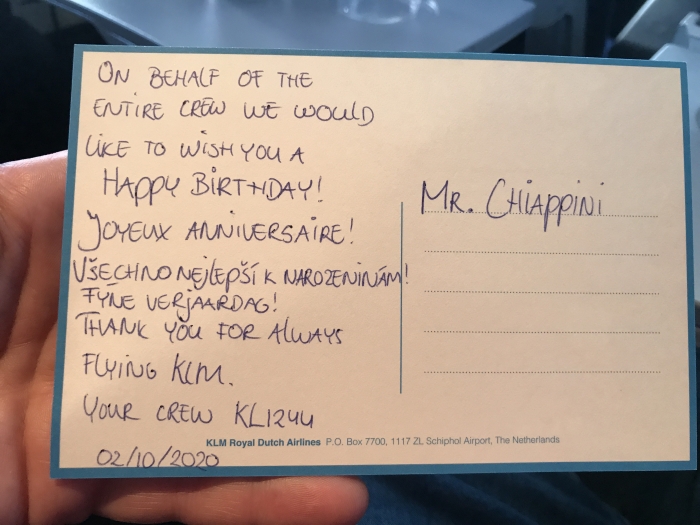 ON BEHALF OF THE
ENTIRE CREW WE WOULD
LIKE TO WISH YOU A
HAPPY BIRTHDAY!
JOYEUX ANNIVERSAIRE!
VŠECHNO NEJLEPŠÍ K NAROZENINÁM!
FYNE VERJAARDAG!
THANK YOU FOR ALWAYS
FLYING KLM.
YOUR CREW KL1244
02/10/2020
MR. CHIAPPINI
KLM Royal Dutch Airlines P.O. Box 7700, 1117 ZL Schiphol Airport, The Netherlands